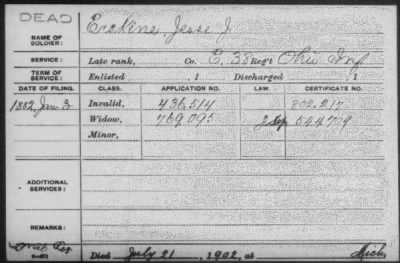 DEAD
NAME OF SOLDIER: Erskine, Jesse J.
SERVICE: Late rank, Co. E, 38 Reg't Ohio Inf
TERM OF SERVICE: Enlisted , 1 Discharged , 1
DATE OF FILING. CLASS. APPLICATION NO. LAW. CERTIFICATE NO.
1882, Jan 3 Invalid, 436,514 802,217
Widow, 769,095 544709
Minor,
ADDITIONAL SERVICES:
REMARKS:
Died July 21, 1902, at Mich.